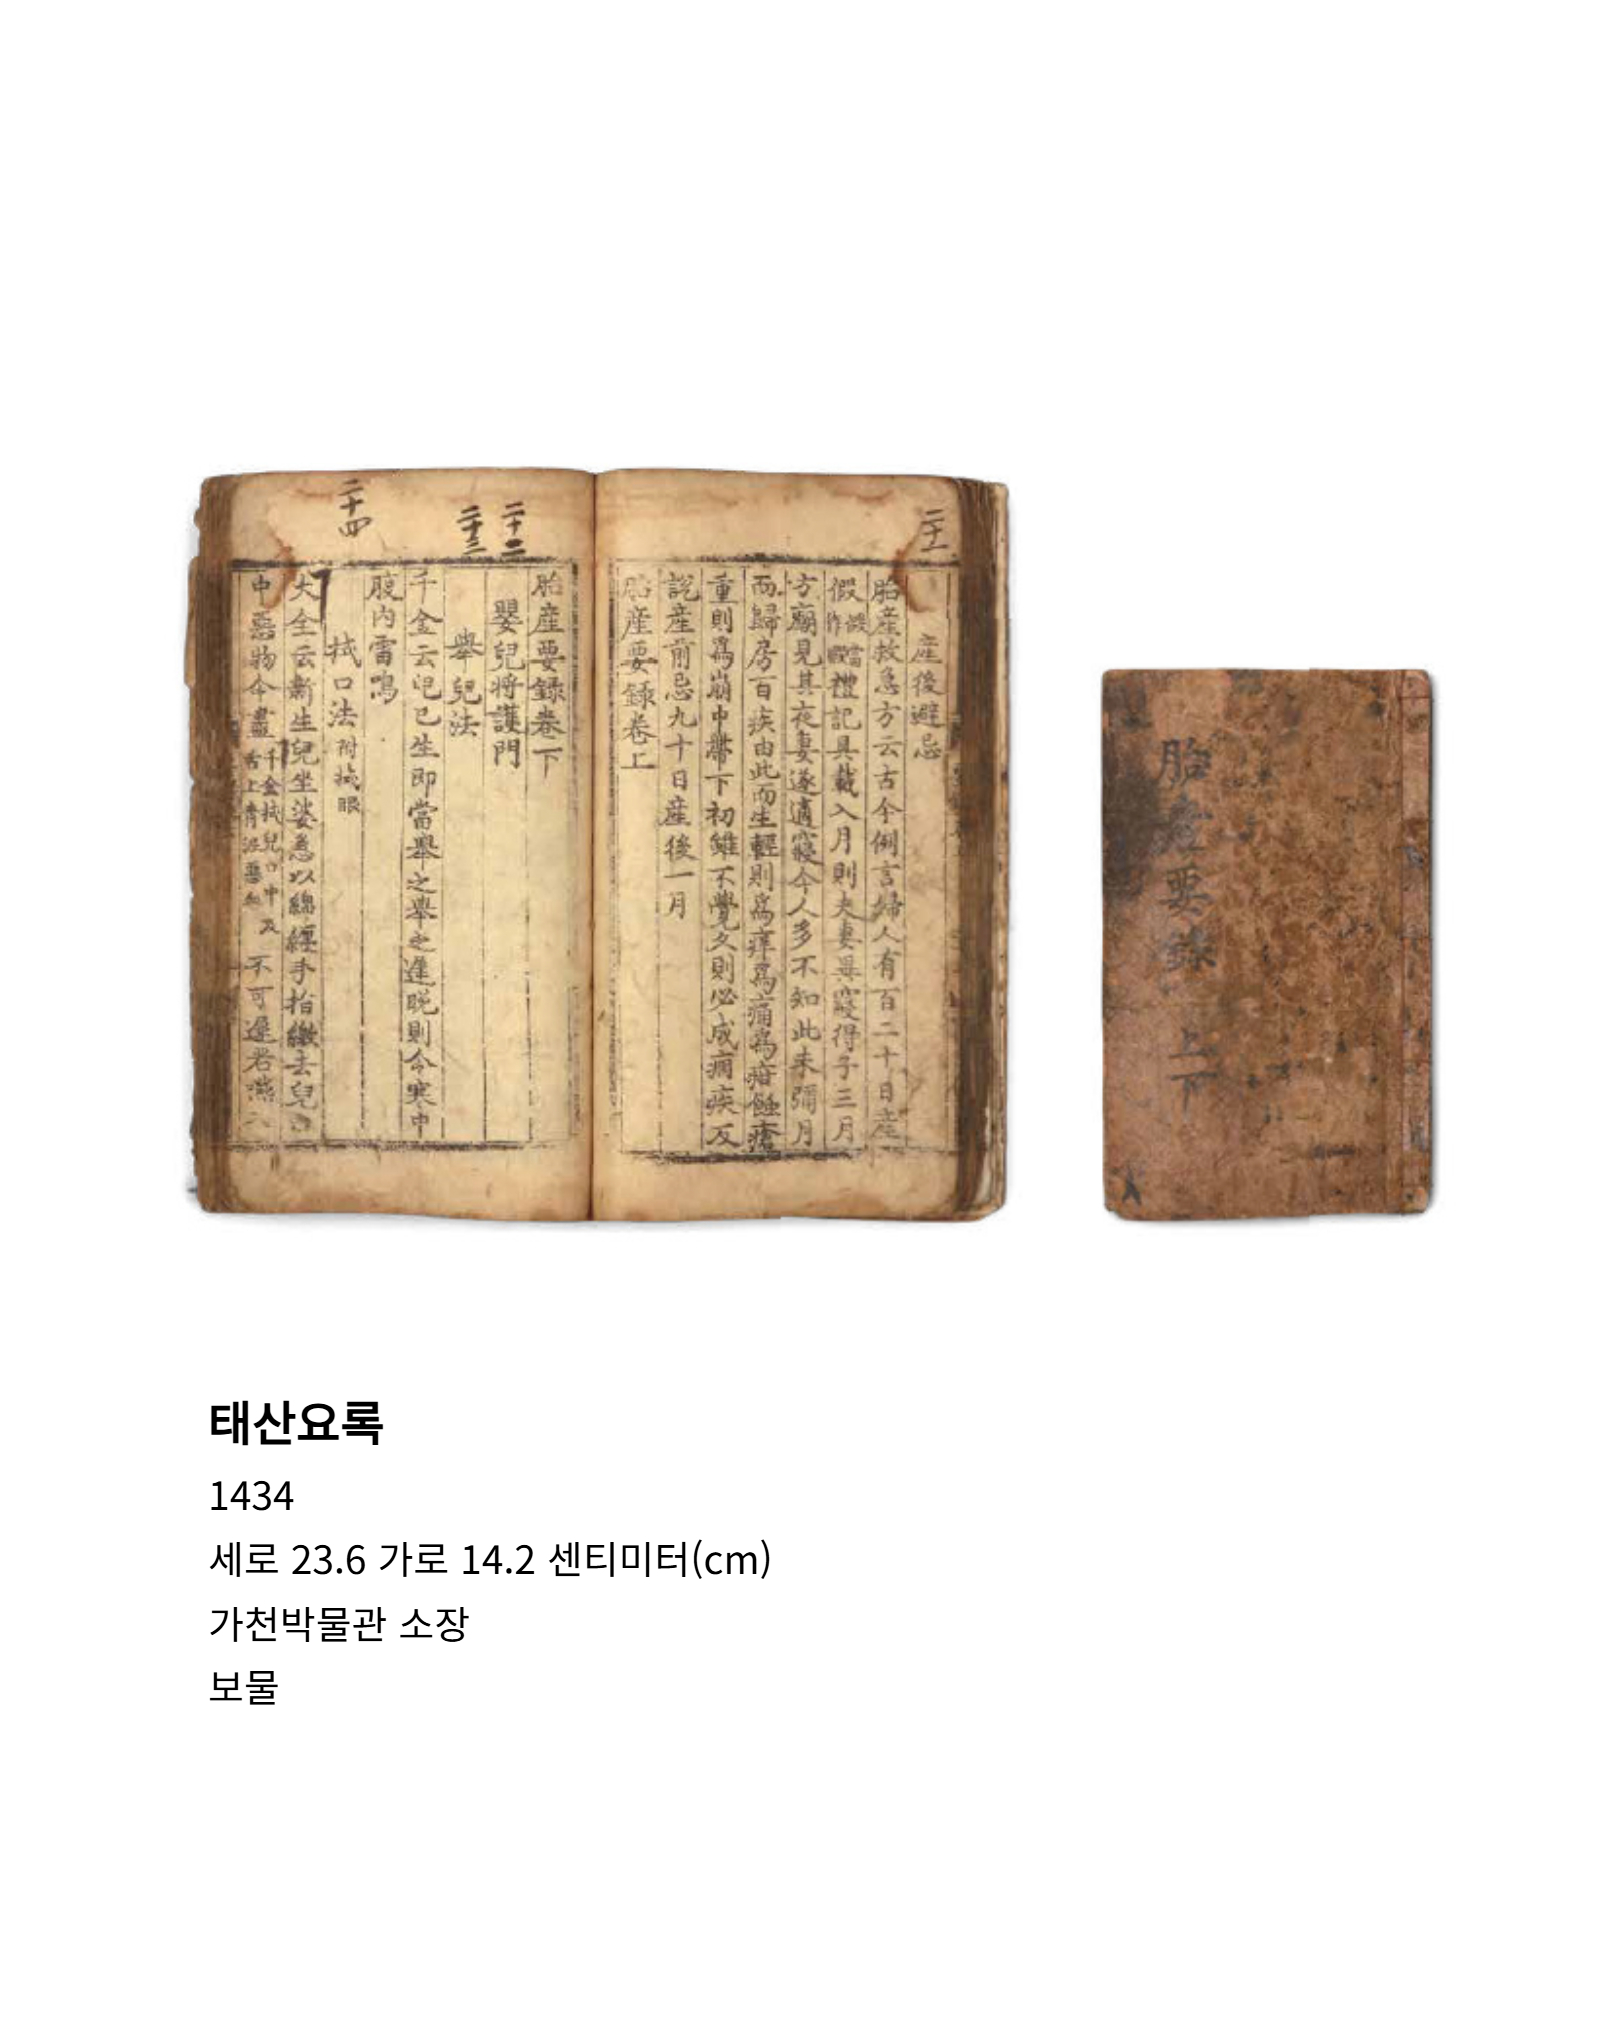 二十一
産後避忌
胎産救急方云古今例言婦人有百二十日産
假
禮記具載入月則夫妻異寢得子三月
方廟見其夜妻遂適寢今人多不知此未彌月
而歸房百疾由此而生輕則爲痒爲痛爲瘡蝕瘡
重則爲崩中帶下初雖不覺久則必成痼疾反
説産前忌九十日産後一月
胎産要録卷上
二十二
二十三
二十四
胎産要録卷下
嬰兒將護門
舉兒法
千金云兒已生即當舉之舉之遲晩則令寒中
腹内雷鳴
拭口法 附拭眼
大全云新生兒坐婆急以綿纒手指繳去兒口
中惡物令盡 千金拭兒口中及舌上青泥惡血 不可遲若
胎産要錄 上下
태산요록
1434
세로 23.6 가로 14.2 센티미터(cm)
가천박물관 소장
보물